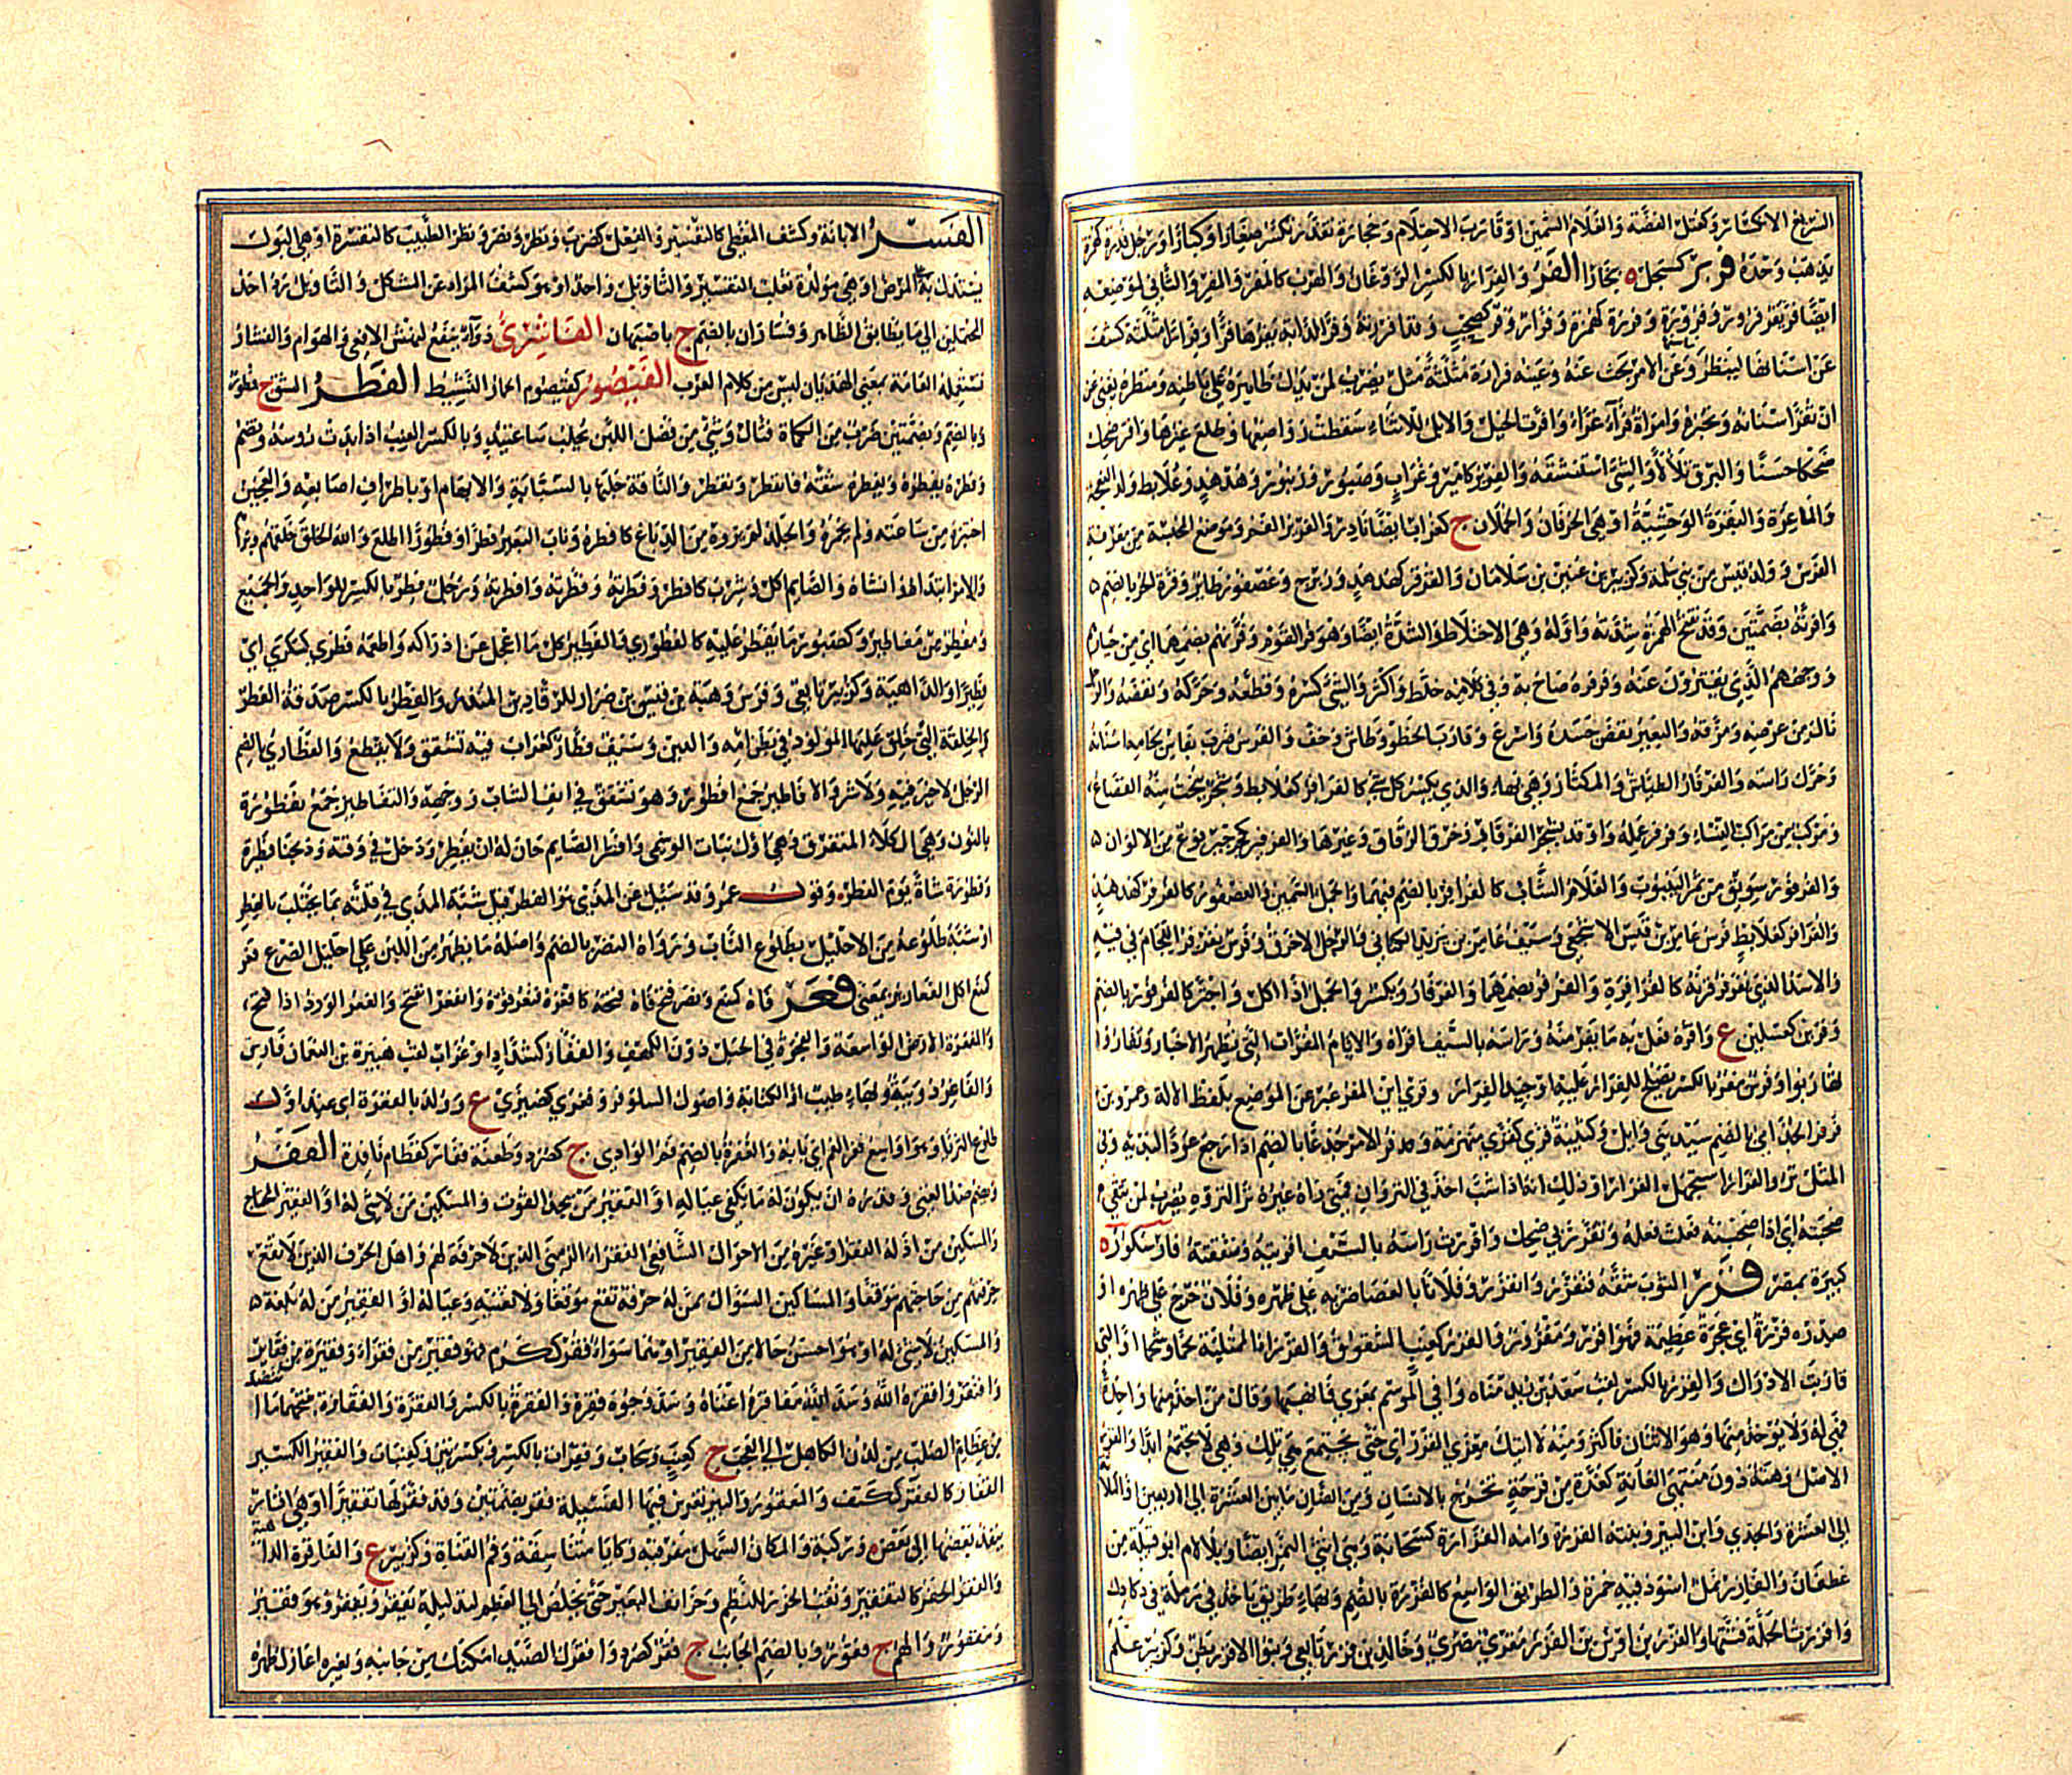 السريع الانكسار وكعتل الغضة والغلام السمين او قارب الاحتلام وحجارة تكسر صغارا وكبارا ورجل فدرة كهمزة
يذهب وحده فرر كسجل بخارا الفر والفرار بالكسر الروغان والهرب كالمفر والمفر والثاني لموضعه
ايضا فر يفر فهو فرور وفرورة وفررة كهمزة وفرار وفر كصحب وقد افررته وفر الدابة يفرها فرا وفرارا مثلثة كشف
عن اسنانها لينظر وعن الامر بحث عنه وعينه فراره مثلثة مثل يضرب لمن يدل ظاهره على باطنه ومنظره يغني عن
ان تفر اسنانه وتخبره وامراة فراء غراء وافرت الخيل والابل للاثناء سقطت رواضعها وطلع غيرها وافتر ضحك
ضحكا حسنا والبرق تلألأ والشئ استنشقه والفرير كامير وغراب وصبور وزنبور وهدهد وعلابط ولد النعجة
والماعزة والبقرة الوحشية او هي الخرفان والحملان ج كغراب ايضا نادر والفرير الفم وموضع المجسة من معرفة
الفرس وولد قيس من بني سلمة وكزبير بن عنين بن سلامان والفرفر كهدهد وزبرج وعصفور طائر وفرة الحر بالضم
وافرته بضمتين وقد تفتح الهمزة شدته واوله وهي الاختلاط والشدة ايضا وهو فر القوم وفرتهم بضمهما اي من خيارهم
ووجههم الذي يفترون عنه وفرفره صاح به وفي كلامه خلط واكثر والشئ كسره وقطعه وحركه ونفضه والرجل
نال من عرضه ومزقه والبعير نفض جسده واسرع وقارب الخطو وطاش وخف والفرس ضرب بفاس لجامه اسنانه
وحرك راسه والفرفار الطياش والمكثار وهي بهاء والذي يكسر كل شئ كالفرافر كعلابط وشجر ينحت منه القصاع
ومركب من مراكب النساء وفرفر عمله واوقد بشجر الفرفار وخرق الزقاق وغيرها والفرفير كجرجير نوع من الالوان
والفرفور سويق من ثمر الينبوت والغلام الشاب كالفرافر بالضم فيهما والجمل السمين والعصفور كالفرفر كهدهد
والفرافر كعلابط فرس عامر بن قيس الاشجعي وسيف عامر بن يزيد الكناني والرجل الاخرق وفرس يفرفر اللجام في فيه
والاسد الذي يفرفر قرنه كالفرافرة والفرفر بضمهما والفرفار ويكسر والجمل اذا اكل واجتر كالفرفور بالضم
وفرين كغسلين ع وافره فعل به ما يفر منه وراسه بالسيف افراه والايام الفرات التي تظهر الاخبار وتفاروا
تهاربوا وفرس مفر بالكسر يصلح للفرار عليه او جيد الفرار وقرئ اين المفر عبر عن الموضع بلفظ الالة وعمرو بن
فرفر الجذامي بالضم سيد بني وائل وكتيبة فرى كعزى منهزمة وفر الامر جذعا بالضم اذا رجع عودا لبدئه وفي
المثل نزو الفرار استجهل الفرارا وذلك انه اذا شب اخذ في النزوان فمتى راه غيره نزا لنزوه يضرب لمن تتقى
صحبته اي اذا صحبته فعلت فعله وتفررت بي ضحك وافررت راسه بالسيف افريته وشققته فارسكور ة
كبيرة بمصر فزر الثوب شقه فتفزر وانفزر وفلانا بالعصا ضربه على ظهره وفلان خرج على ظهره او
صدره فزرة اي عجرة عظيمة فهو افزر ومفزور والفزر كعنب الشقوق والفزراء الممتلئة لحما وشحما او التي
قاربت الادراك والفزر بالكسر لقب سعد بن زيد مناة وافى الموسم بمعزى فانهبها وقال من اخذ منها واحدة
فهي له ولا يؤخذ منها فزر وهو الاثنان فاكثر ومنه لا اتيك معزى الفزر اي حتى تجتمع هي تلك وهي لا تجتمع ابدا والفزر
الاصل وهنة دون منتهى العانة كغدة من قرحة تخرج بالانسان ومن الضان ما بين العشرة الى الاربعين او الثلاثة
الى العشرة والجدي وابن الببر وبنته الفزرة وامه الفزارة كسحابة وهي انثى النمر ايضا وبلا لام ابو قبيلة من
غطفان والفازر نمل اسود فيه حمرة والطريق الواسع كالفزرة بالضم وبهاء طريق ياخذ في رملة في دكادك
وافزرت الجلة فتتها والفزر بن اوس بن الفزر مقرئ مصري وخالد بن فزر تابعي وبنو الافزر بطن وكزبير علم
الفسر الابانة وكشف المغطى كالتفسير والفعل كضرب ونصر ونظر الطبيب الى الماء كالتفسرة او هي البول
يستدل به على المرض او هي مولدة ثعلب التفسير والتاويل واحد او هو كشف المراد عن المشكل والتاويل رد احد
المحتملين الى ما يطابق الظاهر وفساران بالضم ج باصبهان الفاشرى دواء ينفع لنهش الافعى والهوام والفشار
تستعمله العامة بمعنى الهذيان ليس من كلام العرب الفيصور كقيصوم الحمار النشيط الفطر الشق ج فطور
وبالضم وبضمتين ضرب من الكماة قتال وشئ من فضل اللبن يحلب ساعتئذ وبالكسر العنب اذا بدت رؤسه ويضم
وفطره يفطره ويفطره شقه فانفطر وتفطر والناقة حلبها بالسبابة والابهام او باطراف اصابعه والعجين
اختبزه من ساعته ولم يخمره والجلد لم يروه من الدباغ كافطره وناب البعير فطرا وفطورا طلع والله الخلق خلقهم وبراهم
والامر ابتداه وانشاه والصايم اكل وشرب كافطر وفطرته وفطرته وافطرته ورجل فطر بالكسر للواحد والجميع
ومفطر من مفاطير وكصبور ما يفطر عليه كالفطوري والفطير كل ما اعجل عن ادراكه واطعمه فطرى كسكرى اي
فطيرا والداهية وكزبير تابعي وفرس وهبه قيس بن ضرار للرقاد بن المنذر والفطر بالكسر صدقة الفطر
والخلقة التي خلق عليها المولود في بطن امه والدين وسيف فطار كغراب فيه تشقق ولا يقطع والفطاري بالضم
الرجل لا خير فيه ولا شر والافاطير جمع افطور وهو تشقق في انف الشاب ووجهه والتفاطير جمع تفطورة
بالنون وهي الكلأ المتفرق وهي اول نبات الوسمي وافطر الصايم حان له ان يفطر ودخل في وقته وذبحنا فطيرة
وفطورة شاة يوم الفطر وقول عمر وقد سئل عن المذي هو الفطر قيل شبه المذي في قلته بما يحتلب بالفطر
او شبه طلوعه من الاحليل بطلوع الناب ورواه النضر بالضم واصله ما يظهر من اللبن على احليل الضرع فعر
كمنع اكل الفعارير بمعنى فغر فاه كمنع ونصر فتح فاه فتحه كافغره ففغر فوه وانفغر انفتح والفغر الورد اذا فتح
والفغرة الارض الواسعة والفجوة في الجبل دون الكهف والفغار كشداد او غراب لقب هبيرة بن النعمان فارس
والفاغر دويبة وبهاء طيب او الكبابة واصول النيلوفر وفغرى كضيزى ع وولد بالفغرة اي عند اول
طلوع الثريا وهو واسع فغر الفم اي بابه والفغرة بالضم فم الوادي ج كصرد وطعنة فغار كقطام نافذة الفقر
ويضم ضد الغنى وقدره ان يكون له ما يكفي عياله او الفقير من يجد القوت والمسكين من لا شئ له او الفقير المحتاج
والمسكين من اذله الفقر او غيره من الاحوال الشافعي الفقراء الزمنى الذين لا حرفة لهم واهل الحرف الذين لا تقع
حرفتهم من حاجتهم موقعا والمساكين السؤال ممن له حرفة تقع موقعا ولا تغنيه وعياله او الفقير من له بلغة
والمسكين لا شئ له او هو احسن حالا من الفقير او هما سواء فقر ككرم فهو فقير من فقراء وفقيرة من فقاير
وافتقر وافقره الله وسد الله مفاقره اغناه وسد وجوه فقره والفقرة بالكسر والفقرة والفقارة بفتحهما ما انتضد
من عظام الصلب من لدن الكاهل الى العجب ج كعنب وسحاب وفقرات بالكسر وبكسرتين وكعنبات والفقير الكسير
الفقار كالفقر ككتف والمفقور والبير تغرس فيها الفسيلة فقر بضمتين وقد فقر لها تفقيرا او هي ابار
ينفذ بعضها الى بعض وركية والمكان السهل تحفر فيه ركايا متناسقة وفم القناة وكزبير ع والفاقرة الداهية
والفقر الحفر كالتفقير وثقب الخرز للنظم وحز انف البعير حتى يخلص الى العظم لتذليله يفقر ويفقر وهو فقير
ومفقور والهم ج فقور وبالضم الجانب ج فقر كصرد وافقرك الصيد امكنك من جانبه وبعيره اعارك ظهره